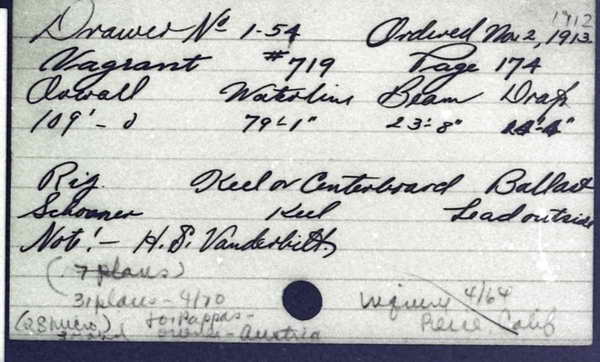 1912
Drawer No 1-54 Ordered Nov 2, 1913
Vagrant #719 Page 174
Overall Waterline Beam Draft
109'-0 79'-1" 23'-8"
Rig. Keel or Centerboard Ballast
Schooner Keel Lead outside
Note!- H. S. Vanderbilt
(7 plans)
31 plans - 4/70 Inquiry 4/64
(28 micro) for Pappas- Calif
owner - Austria